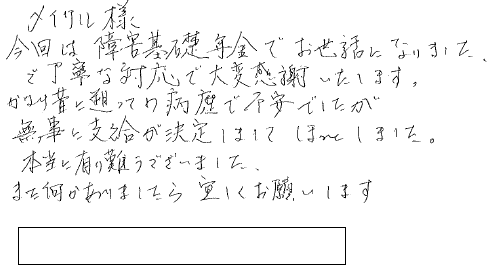 メイクル様
今回は障害基礎年金でお世話になりました、
ご丁寧な対応で大変感謝いたします。
かなり昔に遡っての病歴で不安でしたが
無事に支給が決定しましてほっとしました。
本当に有り難うございました、
また何かありましたら宜しくお願いします